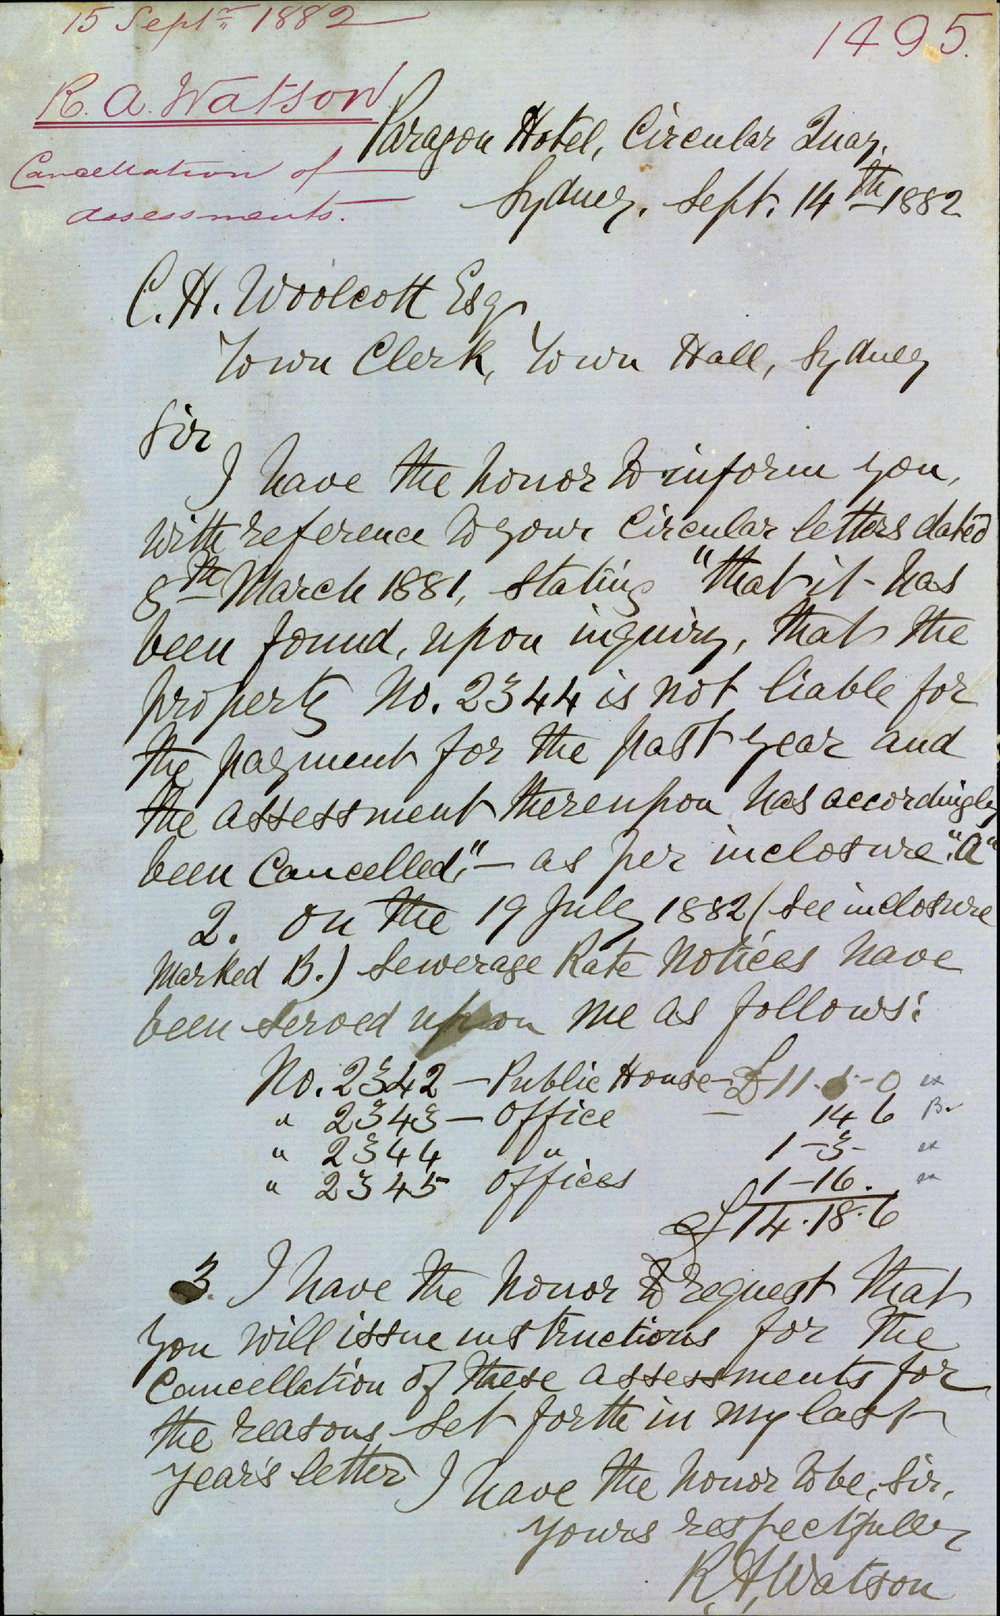 15 Septr 1882
1495.
R. A. Watson
Cancellation of
assessments.
Paragon Hotel, Circular Quay.
Sydney. Sept. 14th 1882
C. H. Woolcott Esq
Town Clerk, Town Hall, Sydney
Sir
I have the honor to inform you,
with reference to your Circular letters dated
8th March 1881, stating "that it has
been found, upon inquiry, that the
property No. 2344 is not liable for
the payment for the past year and
the assessment thereupon has accordingly
been Cancelled," – as per inclosure "A"
2. On the 19 July 1882 (see inclosure
marked B.) Sewerage Rate Notices have
been served upon me as follows:
No. 2342 – Public House – £11. 5 – 0 ex
" 2343 – Office – 14 6 B.
" 2344 " 1 – 3 – ex
" 2345 Offices 1 – 16 . ex
£14. 18. 6
3. I have the honor to request that
you will issue instructions for the
Cancellation of these assessments for
the reasons set forth in my last
year's letter I have the honor to be, Sir,
yours respectfully
R. A. Watson